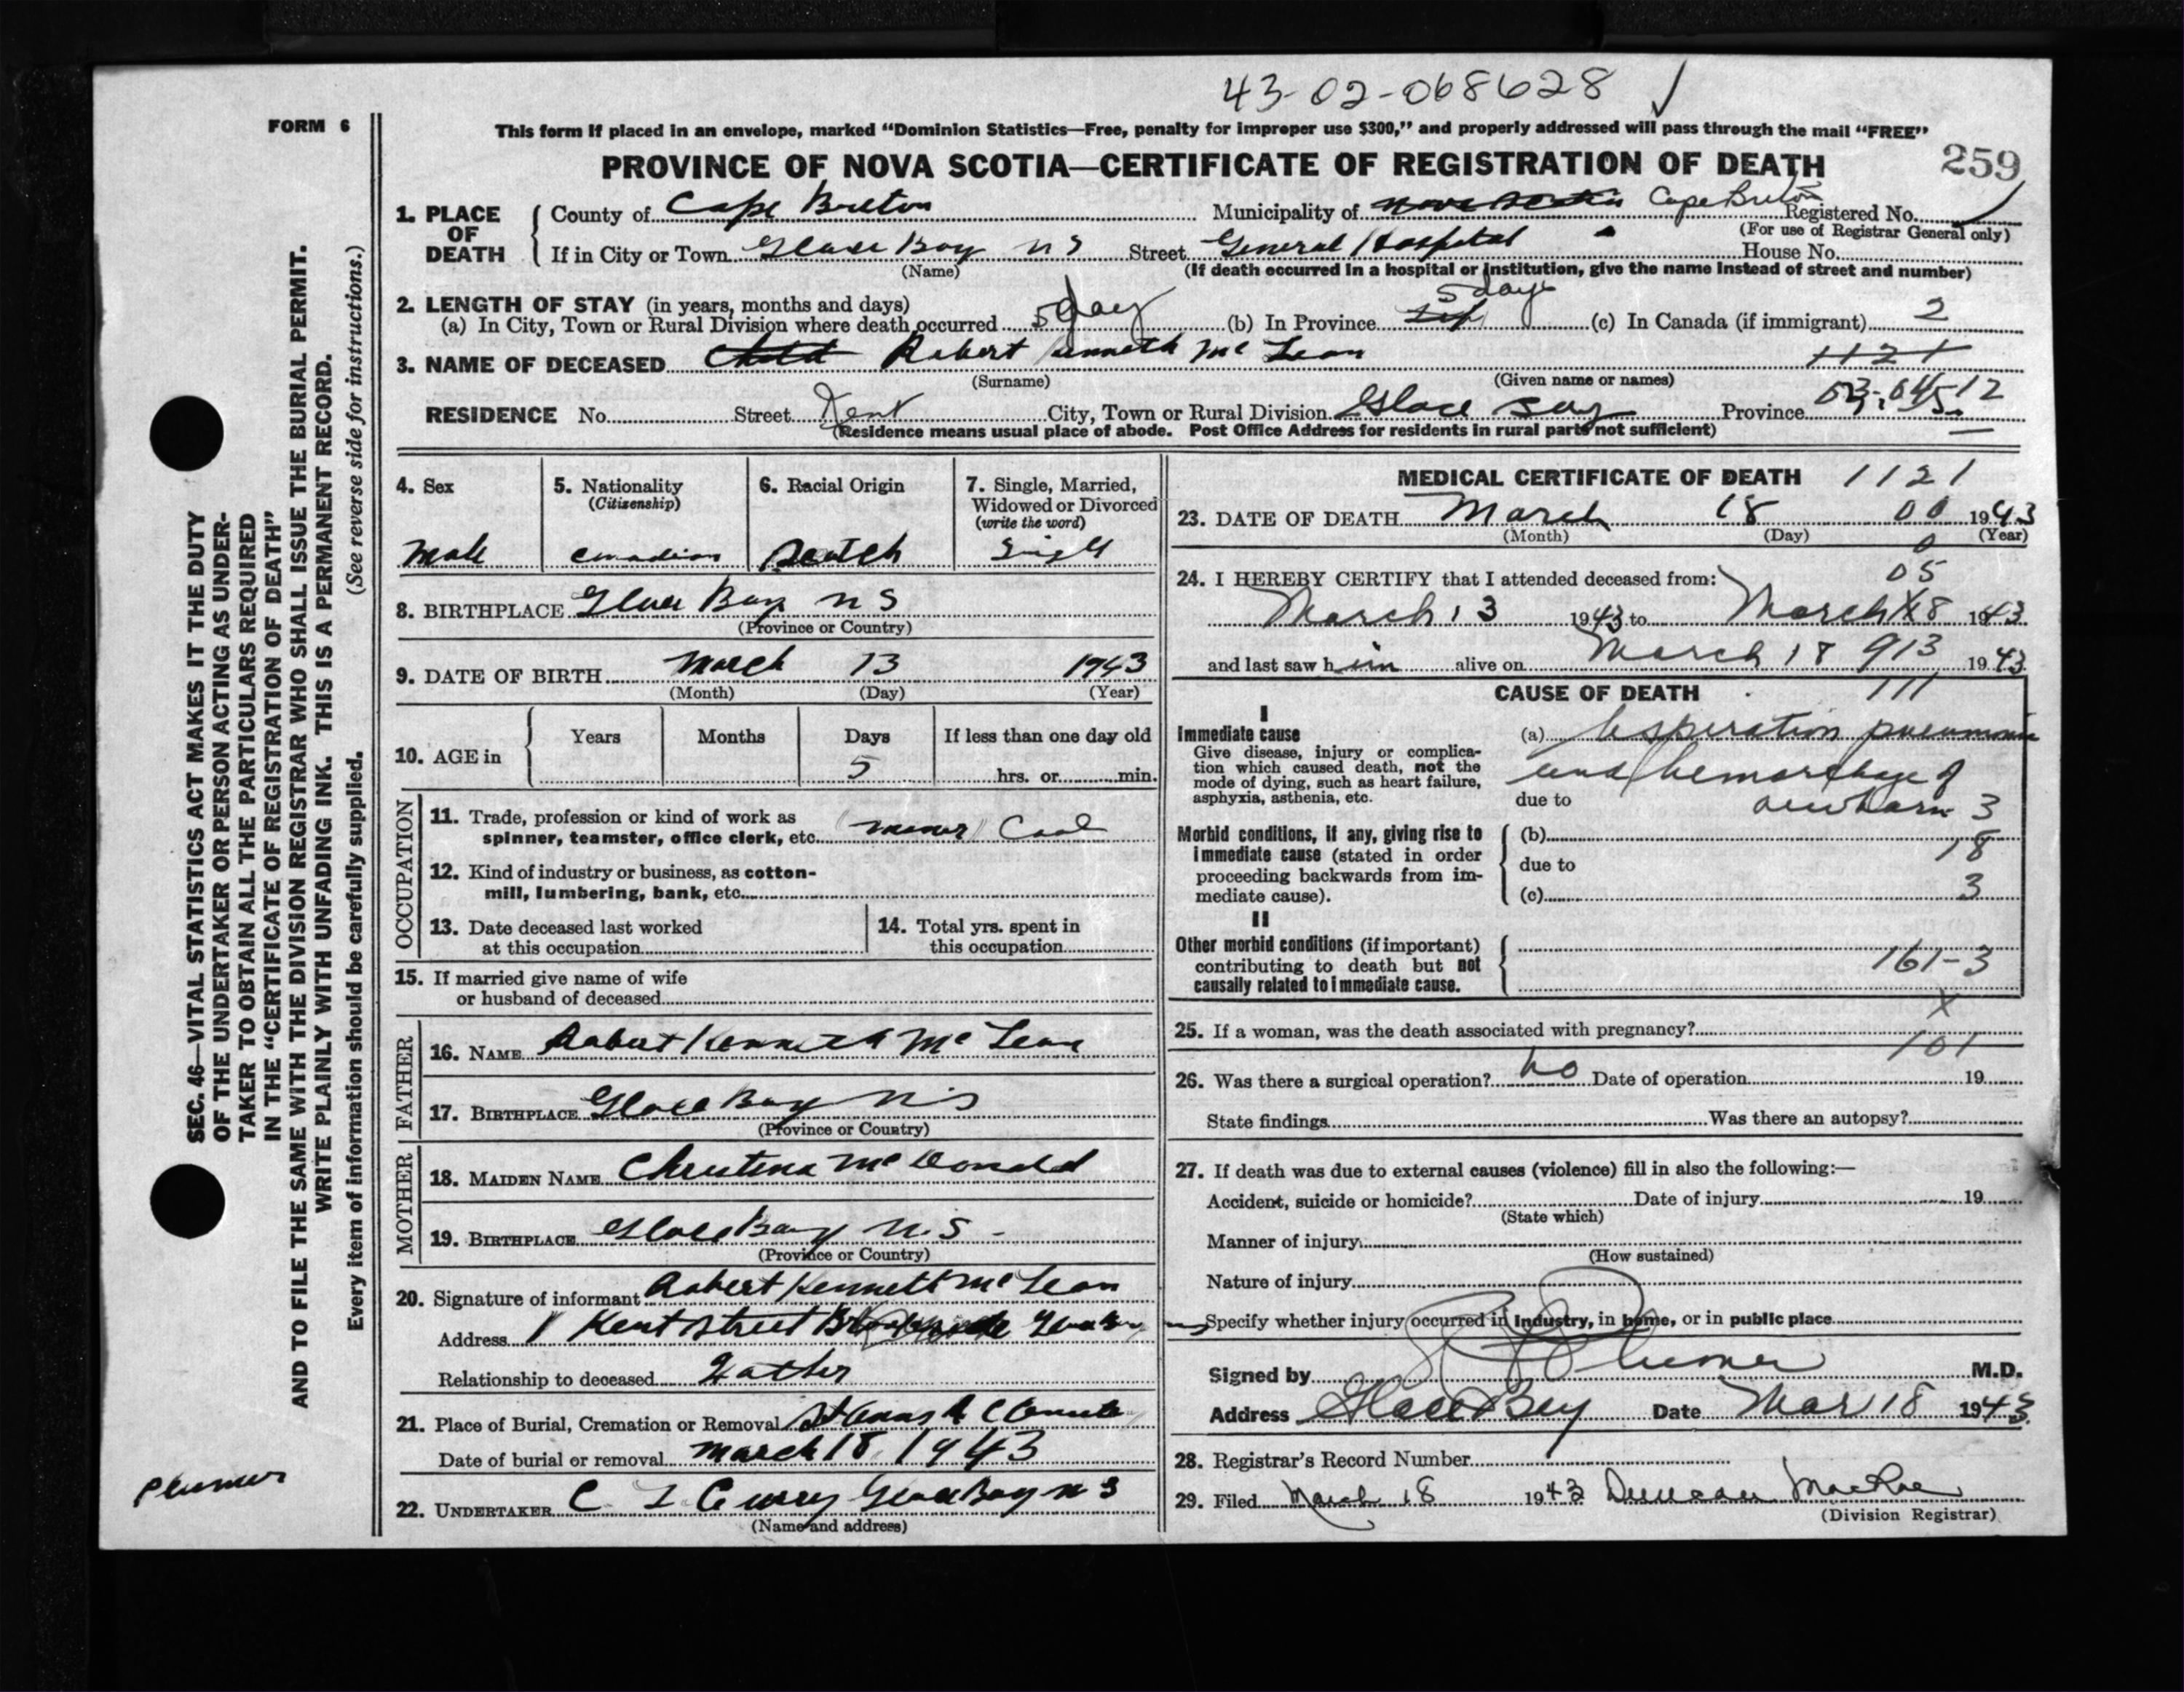 43-02-068628 ✓
FORM 6
This form if placed in an envelope, marked “Dominion Statistics—Free, penalty for improper use $300,” and properly addressed will pass through the mail “FREE”
PROVINCE OF NOVA SCOTIA—CERTIFICATE OF REGISTRATION OF DEATH 259
SEC. 46—VITAL STATISTICS ACT MAKES IT THE DUTY
OF THE UNDERTAKER OR PERSON ACTING AS UNDER-
TAKER TO OBTAIN ALL THE PARTICULARS REQUIRED
IN THE “CERTIFICATE OF REGISTRATION OF DEATH”
AND TO FILE THE SAME WITH THE DIVISION REGISTRAR WHO SHALL ISSUE THE BURIAL PERMIT.
WRITE PLAINLY WITH UNFADING INK. THIS IS A PERMANENT RECORD.
Every item of information should be carefully supplied. (See reverse side for instructions.)
Plumer
1. PLACE OF DEATH
County of Cape Breton Municipality of Nova Scotia Cape Breton Registered No.
(For use of Registrar General only)
If in City or Town Glace Bay N S Street General Hospital House No.
(Name) (If death occurred in a hospital or institution, give the name instead of street and number)
2. LENGTH OF STAY (in years, months and days)
(a) In City, Town or Rural Division where death occurred 5 day (b) In Province 5 days (c) In Canada (if immigrant) 2
3. NAME OF DECEASED Child Robert Kenneth Mc Lean 1121
(Surname) (Given name or names)
RESIDENCE No. Street Kent City, Town or Rural Division Glace Bay Province 
(Residence means usual place of abode. Post Office Address for residents in rural parts not sufficient)
4. Sex
Male
5. Nationality
(Citizenship)
Canadian
6. Racial Origin
Scotch
7. Single, Married,
Widowed or Divorced
(write the word)
Single
8. BIRTHPLACE Glace Bay N S
(Province or Country)
9. DATE OF BIRTH March 13 1943
(Month) (Day) (Year)
10. AGE in
Years Months Days If less than one day old
5 hrs. or min.
OCCUPATION
11. Trade, profession or kind of work as
spinner, teamster, office clerk, etc. "miner" Coal
12. Kind of industry or business, as cotton-
mill, lumbering, bank, etc.
13. Date deceased last worked
at this occupation
14. Total yrs. spent in
this occupation
15. If married give name of wife
or husband of deceased
FATHER
16. NAME Robert Kenneth Mc Lean
17. BIRTHPLACE Glace Bay N S
(Province or Country)
MOTHER
18. MAIDEN NAME Christena Mc Donald
19. BIRTHPLACE Glace Bay N.S -
(Province or Country)
20. Signature of informant Robert Kenneth Mc Lean
Address 1 Kent Street Glace Bay
Relationship to deceased Father
21. Place of Burial, Cremation or Removal
Date of burial or removal March 18, 1943
22. UNDERTAKER C Curry Glace Bay N S
(Name and address)
MEDICAL CERTIFICATE OF DEATH 1121
23. DATE OF DEATH March 18 00 1943
(Month) (Day) (Year)
0
24. I HEREBY CERTIFY that I attended deceased from: 05
March 13 1943 to March 18 1943
and last saw him alive on March 18 913 1943
CAUSE OF DEATH 111
I
Immediate cause
Give disease, injury or complica-
tion which caused death, not the
mode of dying, such as heart failure,
asphyxia, asthenia, etc.
(a) Asperation pneumonia
and hemorrhage of
due to newborn 3
Morbid conditions, if any, giving rise to
immediate cause (stated in order
proceeding backwards from im-
mediate cause).
(b) 18
due to
(c) 3
II
Other morbid conditions (if important)
contributing to death but not
causally related to immediate cause.
161-3
X
25. If a woman, was the death associated with pregnancy?
101
26. Was there a surgical operation? no Date of operation 19
State findings Was there an autopsy?
27. If death was due to external causes (violence) fill in also the following:—
Accident, suicide or homicide? Date of injury 19
(State which)
Manner of injury
(How sustained)
Nature of injury
Specify whether injury occurred in industry, in home, or in public place
Signed by Plumer M.D.
Address Glace Bay Date Mar 18 1943
28. Registrar's Record Number
29. Filed March 18 1943 Duncan MacRae
(Division Registrar)